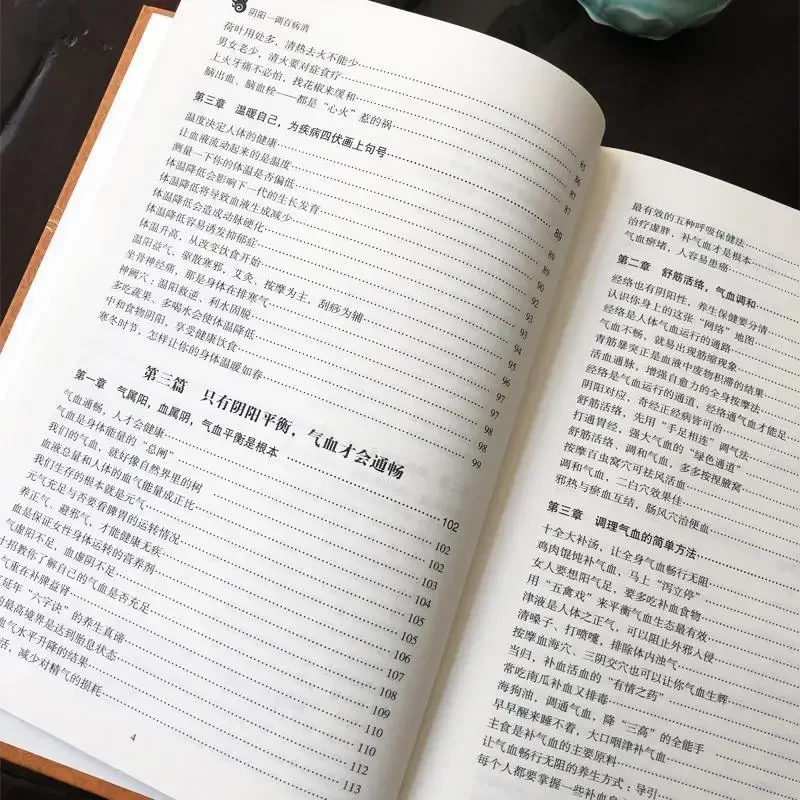 阴阳一调百病消
荷叶用处多，清热去火不能少 85
男女老少，清火要对症食疗 86
上火牙痛不必怕，找花椒来缓和 87
脑出血、脑血栓——都是“心火”惹的祸 87
第三章 温暖自己，为疾病四伏画上句号 89
温度决定人体的健康 89
让血液流动起来的是温度 89
测量一下你的体温是否偏低 90
体温降低会影响下一代的生长发育 92
体温降低将导致血液生成减少 93
体温降低会造成动脉硬化 93
体温降低容易诱发抑郁症 94
体温升高，从改变饮食开始 95
温阳益气，驱散寒邪，艾灸、按摩为主，刮痧为辅 96
坐骨神经痛，那是身体在排寒气 97
神阙穴：温阳救逆，利水固脱 97
多吃蔬果、多喝水会使体温降低 98
中和食物阴阳，享受健康饮食 98
寒冬时节，怎样让你的身体温暖如春 99
第三篇 只有阴阳平衡，气血才会通畅
第一章 气属阳，血属阴，气血平衡是根本 102
气血通畅，人才会健康 102
气血是身体能量的“总闸” 102
我们的气血，就好像自然界里的树 103
血液总量和人体的血气能量成正比 104
我们生存的根本就是元气 105
元气充足与否要看脾胃的运转情况 105
养正气、避邪气，才能健康无疾 106
血是保证女性身体运转的营养剂 107
气虚阳不足，血虚阴不足 108
十招教你了解自己的气血是否充足 109
气重在补脾益肾 110
延年“六字诀”的养生真谛 110
的最高境界是达到胎息状态 112
血气水平升降的结果 113
活，减少对精气的损耗
4
最有效的五种呼吸保健法
治疗虚胖，补气血才是根本
气血瘀堵，人容易患癌
第二章 舒筋活络，气血调和
经络也有阴阳性，养生保健要分清
认识你身上的这张“网络”地图
经络是人体气血运行的通路
气血不畅，就易出现筋缩现象
青筋暴突正是血液中废物积滞的结果
活血通脉，增强自愈力的全身按摩法
经络是气血运行的通道，经络通气血才能足
阴阳对应，奇经正经病皆可治
舒筋活络，先用“手足相连”调气法
打通胃经，强大气血的“绿色通道”
舒筋活络，调和气血，多多按捏腋窝
按摩百虫窝穴可祛风活血
调和气血，二白穴效果佳
邪热与瘀血互结，肠风穴治便血
第三章 调理气血的简单方法
十全大补汤，让全身气血畅行无阻
鸡肉馄饨补气血，马上“泻立停”
女人要想阳气足，要多吃补血食物
用“五禽戏”来平衡气血生态最有效
津液是人体之正气，可以阻止外邪入侵
清嗓子、打喷嚏，排除体内浊气
按摩血海穴、三阴交穴也可以让你气血生辉
当归，补血活血的“有情之药”
常吃南瓜补血又排毒
海狗油，调通气血，降“三高”的全能手
早早醒来睡不着，大口咽津补气血
主食是补气血的主要原料
让气血畅行无阻的养生方式：导引
每个人都要掌握一些补血